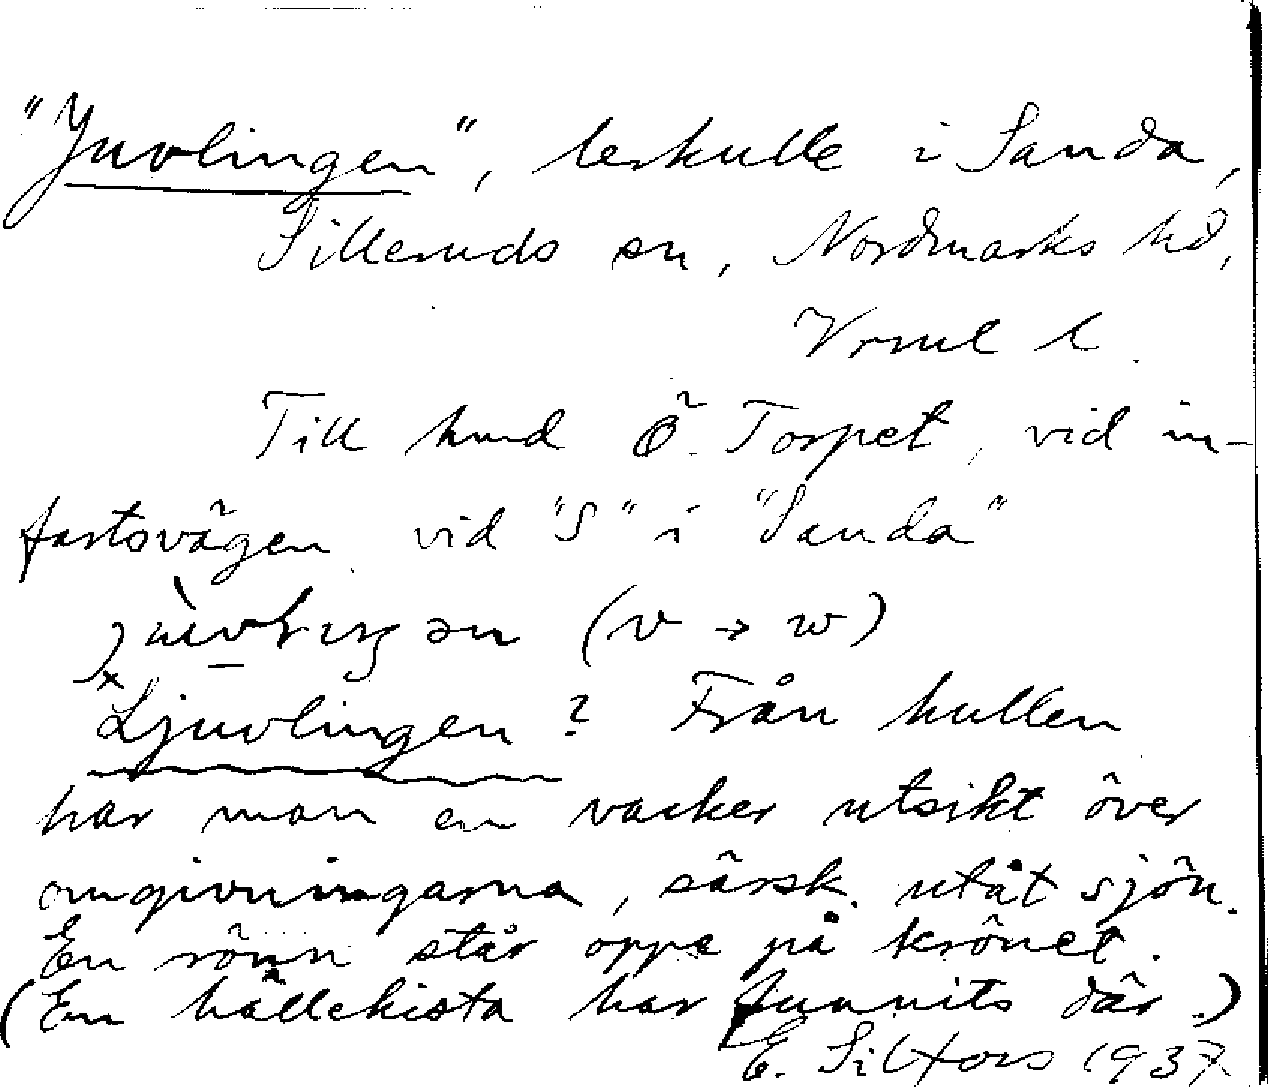 "Juvlingen", lerkulle i Sanda,
Silleruds sn, Nordmarks hd,
Vrml l.
Till hmd Ö. Torpet, vid in-
fartsvägen vid "S" i "Sanda"
(v → w)
Ljuvlingen? Från kullen
har man en vacker utsikt över
omgivningarna, särsk. utåt sjön.
En rönn står oppe på krönet.
(En hällekista har funnits där.)
E. Silfors 1937